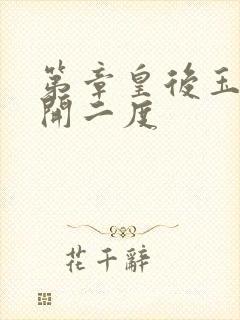 第章皇後玉
開二度
花千辭